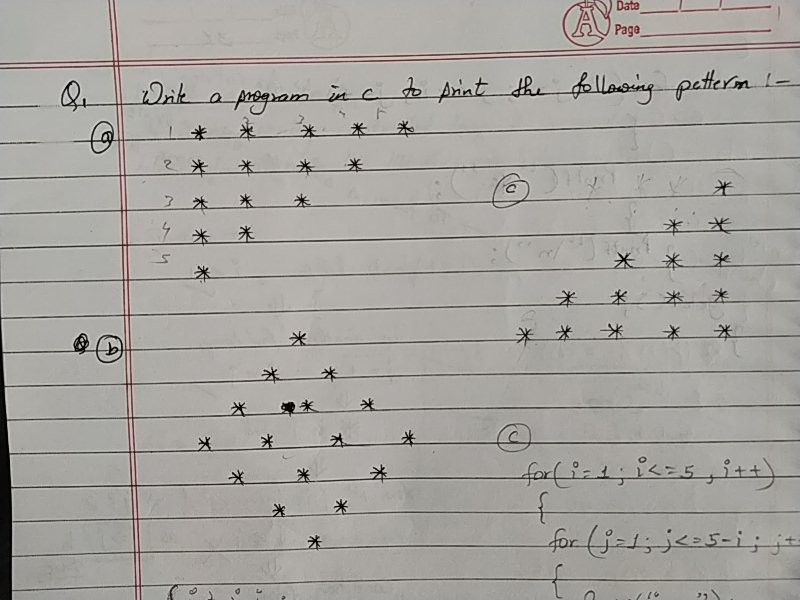 Data
Page
Q. Write a program in c to print the following petterm :-
(a) 1 * * * * *
2 * * * *
3 * * *
4 * *
5 *
(c) *
* *
* * *
* * * *
* * * * *
(b) *
* *
* * *
* * * *
* * *
* *
*
(c)
for(i=1; i<=5, i++)
{
for (j=1; j<=5-i; j+
{